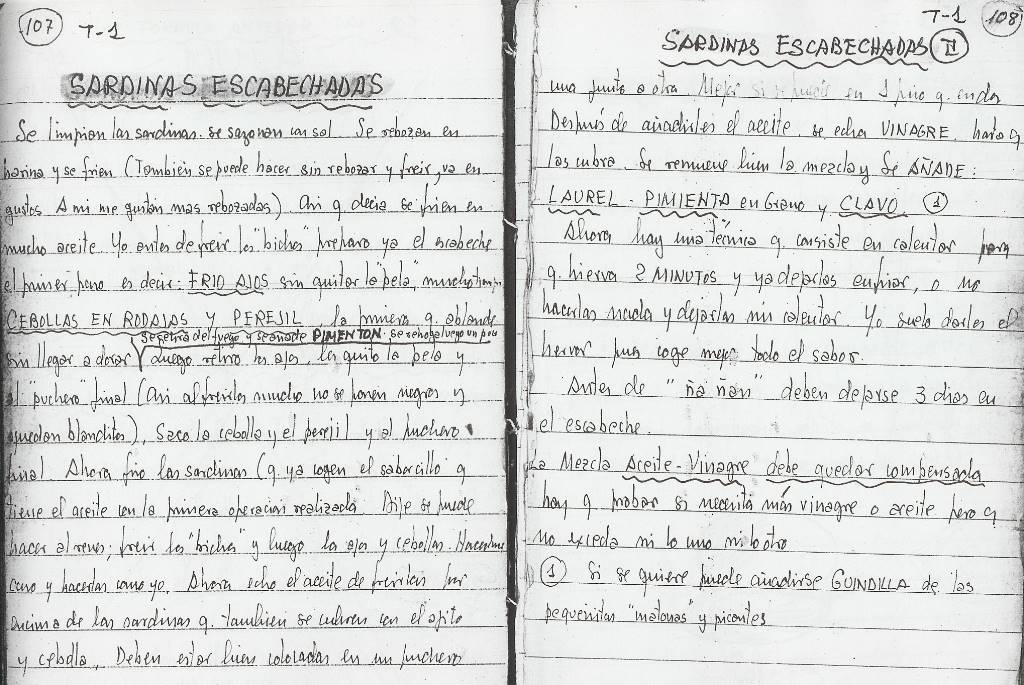 107 T-1
SARDINAS ESCABECHADAS
Se limpian las sardinas. se sazonan con sal. Se rebozan en
harina y se frien (También se puede hacer sin rebozar y freir, va en
gustos. A mi me gustan mas rebozadas). Ahi q decia se frien en
mucho aceite. Yo antes de freir los "bichos" preparo ya el escabeche
el primer paso es decir: FRIO AJOS sin quitar la "pela", mucho tiempo,
CEBOLLAS EN RODAJAS Y PEREJIL la primera q. ablande
se retira del fuego y se añade PIMENTON. se rehoga luego un poco
sin llegar a dorar luego retiro los ajos, les quito la pela y
al "puchero" final (Asi al freirlos mucho no se ponen negros y
quedan blanditos), Saco la cebolla y el perejil y al puchero
final. Ahora frio las sardinas (q. ya cogen el saborcillo q
tiene el aceite con la primera operación realizada. Dije se puede
hacer al reves; freir los "bichos" y luego los ajos y cebollas. Hacedme
caso y hacerlas como yo. Ahora echo el aceite de freirlas por
encima de las sardinas q. tambien se cubren con el ajito
y cebolla. Deben estar bien colocadas en un puchero
T-1 108
SARDINAS ESCABECHADAS II
una junto a otra. Mejor si en 1 piso q. en dos
Después de añadirles el aceite, se echa VINAGRE hasta q
las cubra. Se remueve bien la mezcla y Se AÑADE:
LAUREL - PIMIENTA en Grano y CLAVO 1
Ahora hay una técnica q. consiste en calentar para
q. hierva 2 MINUTOS y ya dejarlas enfriar, o no
hacerlas nada y dejarlas sin calentar. Yo suelo darles el
hervor pues coge mejor todo el sabor.
Antes de "ña ñan" deben dejarse 3 dias en
el escabeche.
La Mezcla Aceite-Vinagre debe quedar compensada
hay q. probar si necesita más vinagre o aceite pero q
no exceda ni lo uno ni lo otro
1 Si se quiere puede añadirse GUINDILLA de las
pequeñitas "matonas" y picantes